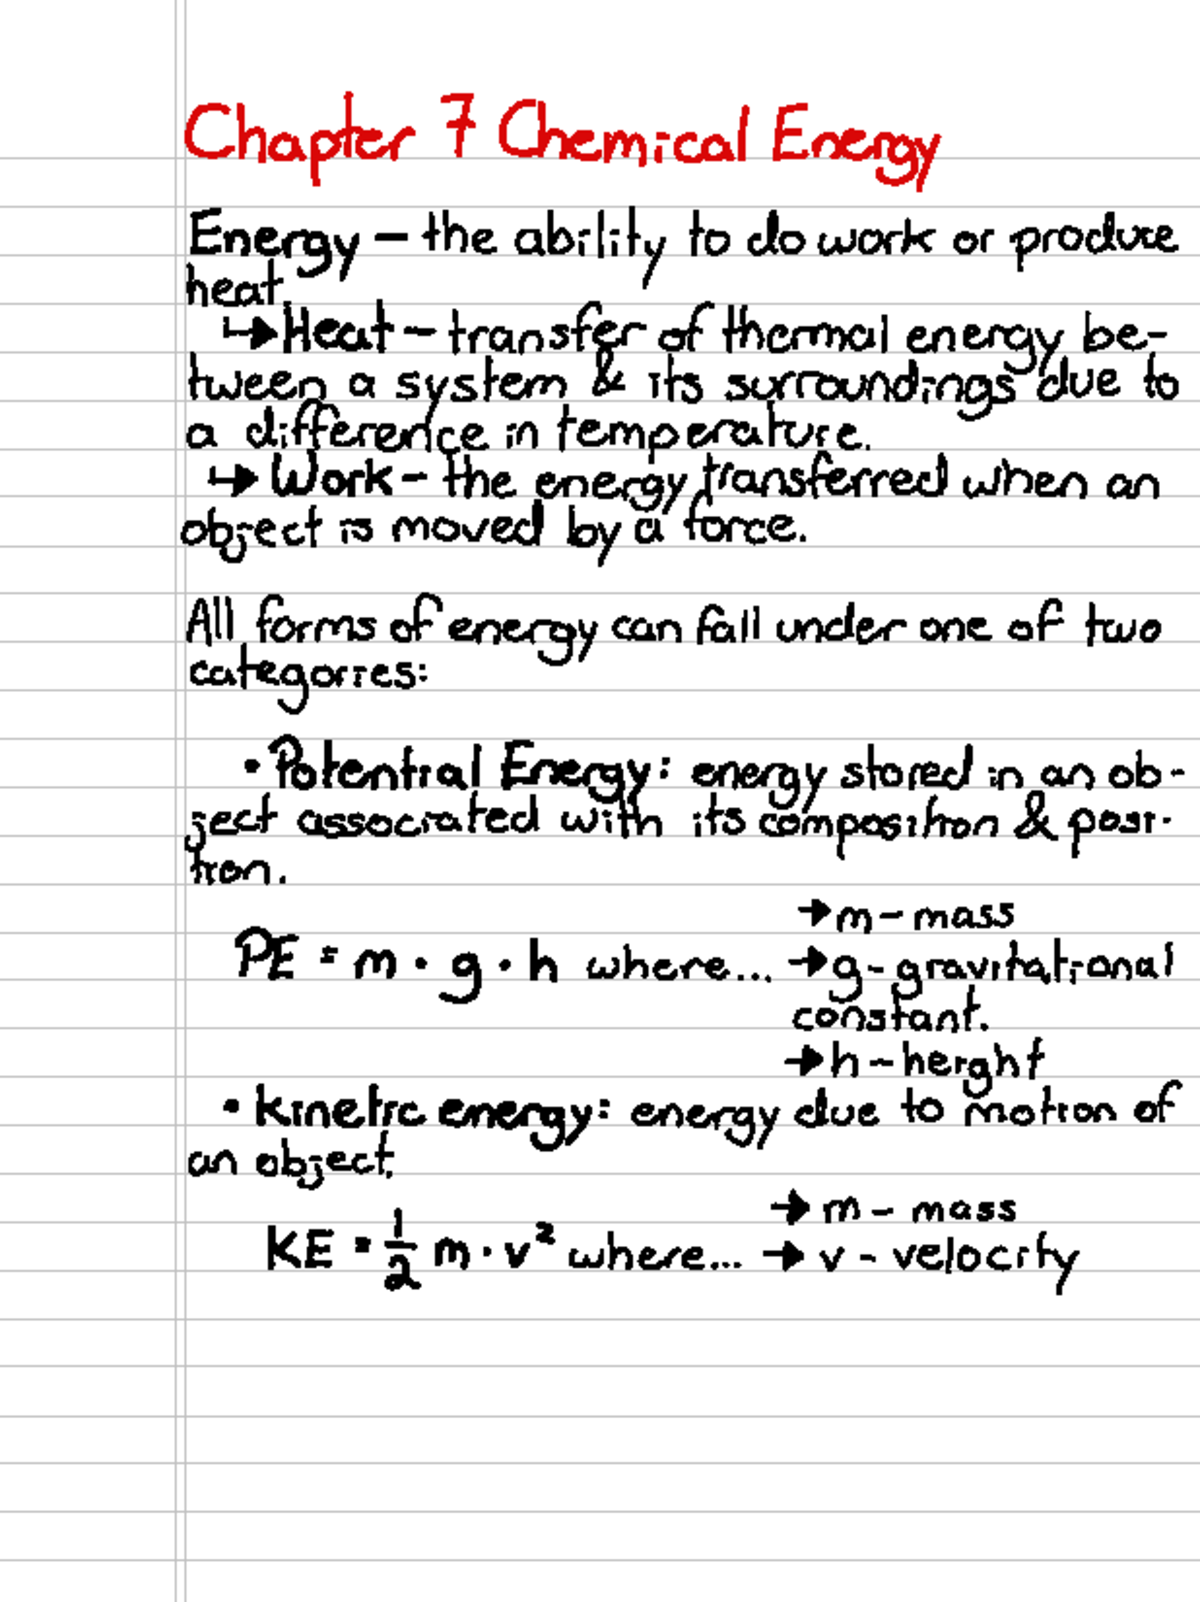 Chapter 7 Chemical Energy
Energy – the ability to do work or produce
heat.
↳ Heat – transfer of thermal energy be-
tween a system & its surroundings due to
a difference in temperature.
↳ Work – the energy transferred when an
object is moved by a force.
All forms of energy can fall under one of two
categories:
• Potential Energy: energy stored in an ob-
ject associated with its composition & posi-
tion.
→ m – mass
PE = m · g · h where... → g - gravitational
constant.
→ h – height
• Kinetic energy: energy due to motion of
an object.
→ m – mass
KE = 1/2 m · v² where... → v - velocity